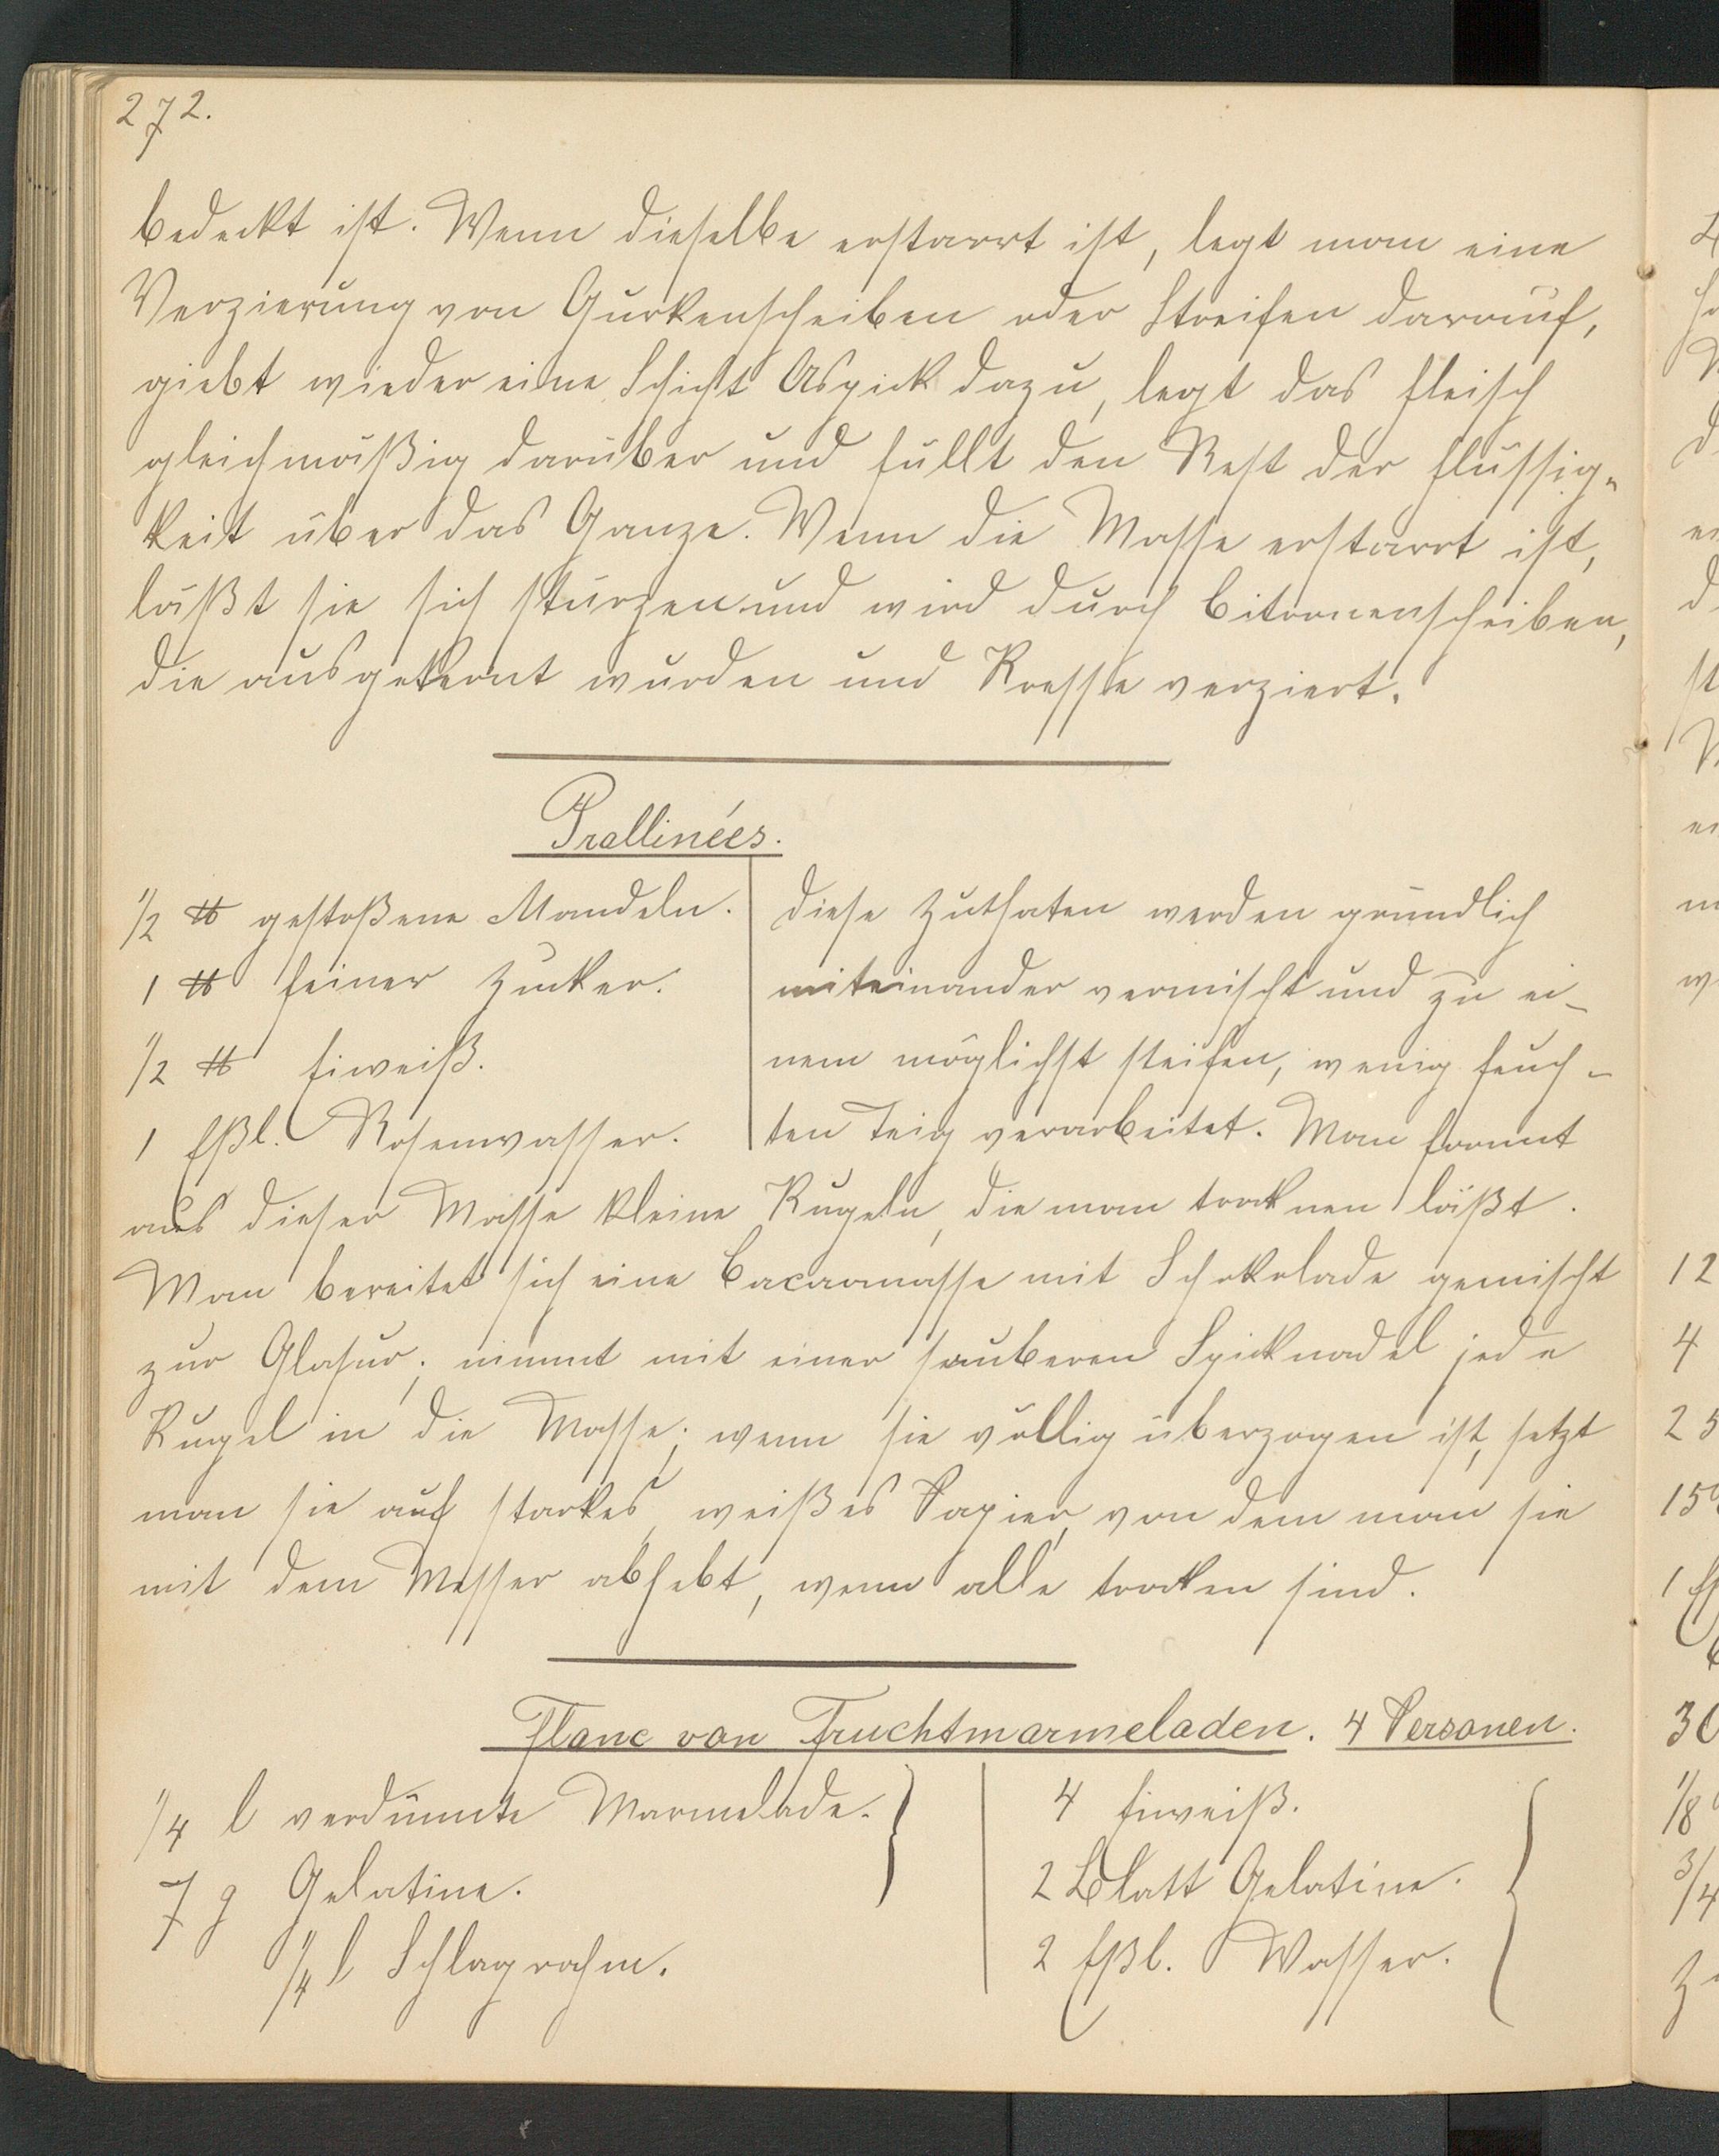 272.
bedeckt ist. Wenn dieselbe erstarrt ist, legt man eine
Verzierung von Gurkenscheiben oder Streifen darauf,
giebt wieder eine Schicht Aspick dazu, legt das Fleisch
gleichmäßig darüber und füllt den Rest der Flüssig-
keit über das Ganze. Wenn die Masse erstarrt ist,
läßt sie sich stürzen und wird durch Citronenscheiben,
die ausgekernt wurden und Kresse verziert.
Prallinées.
1/2 ℔ gestoßene Mandeln.
1 ℔ feiner Zucker.
1/2 ℔ Eiweiß.
1 Eßl. Rosenwasser.
Diese Zuthaten werden gründlich
miteinander vermischt und zu ei-
nem möglichst steifen, wenig feuch-
ten Teig verarbeitet. Man formt
aus dieser Masse kleine Kugeln, die man trocknen läßt.
Man bereitet sich eine Cacaomasse mit Schokolade gemischt
zur Glasur; nimmt mit einer sauberen Spicknadel jede
Kugel in die Masse; wenn sie völlig überzogen ist, setzt
man sie auf starkes, weißes Papier, von dem man sie
mit dem Messer abhebt, wenn alle trocken sind.
Flanc von Fruchtmarmeladen. 4 Personen.
1/4 l verdünnte Marmelade.
7 g Gelatine.
1/4 l Schlagrahm.
4 Eiweiß.
2 Blatt Gelatine.
2 Eßl. Wasser.
12
4
25
15
1
30
1/8
3/4